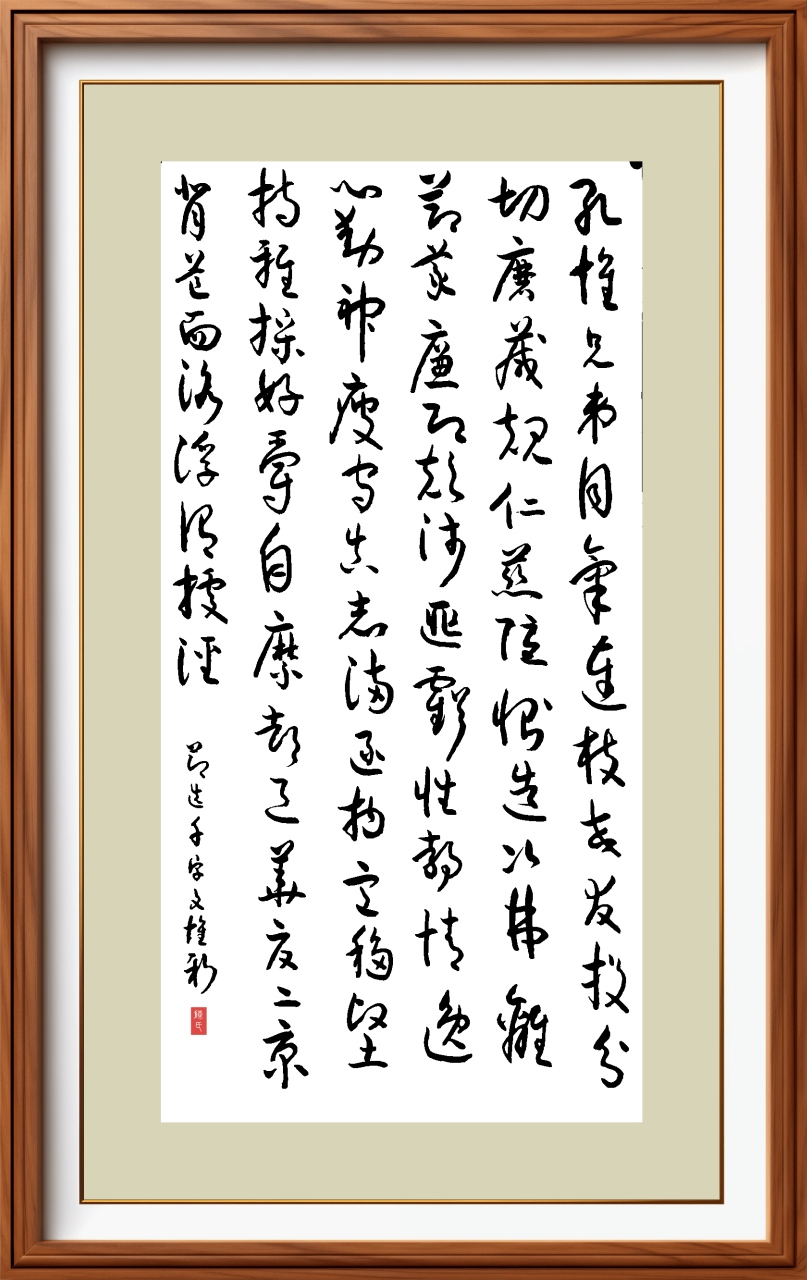 孔懷兄弟同氣連枝交友投分
切磨箴規仁慈隱惻造次弗離
節義廉退顛沛匪虧性靜情逸
心動神疲守真志滿逐物意移堅
持雅操好爵自縻都邑華夏二京
背芒面洛浮渭據涇
節选千字文